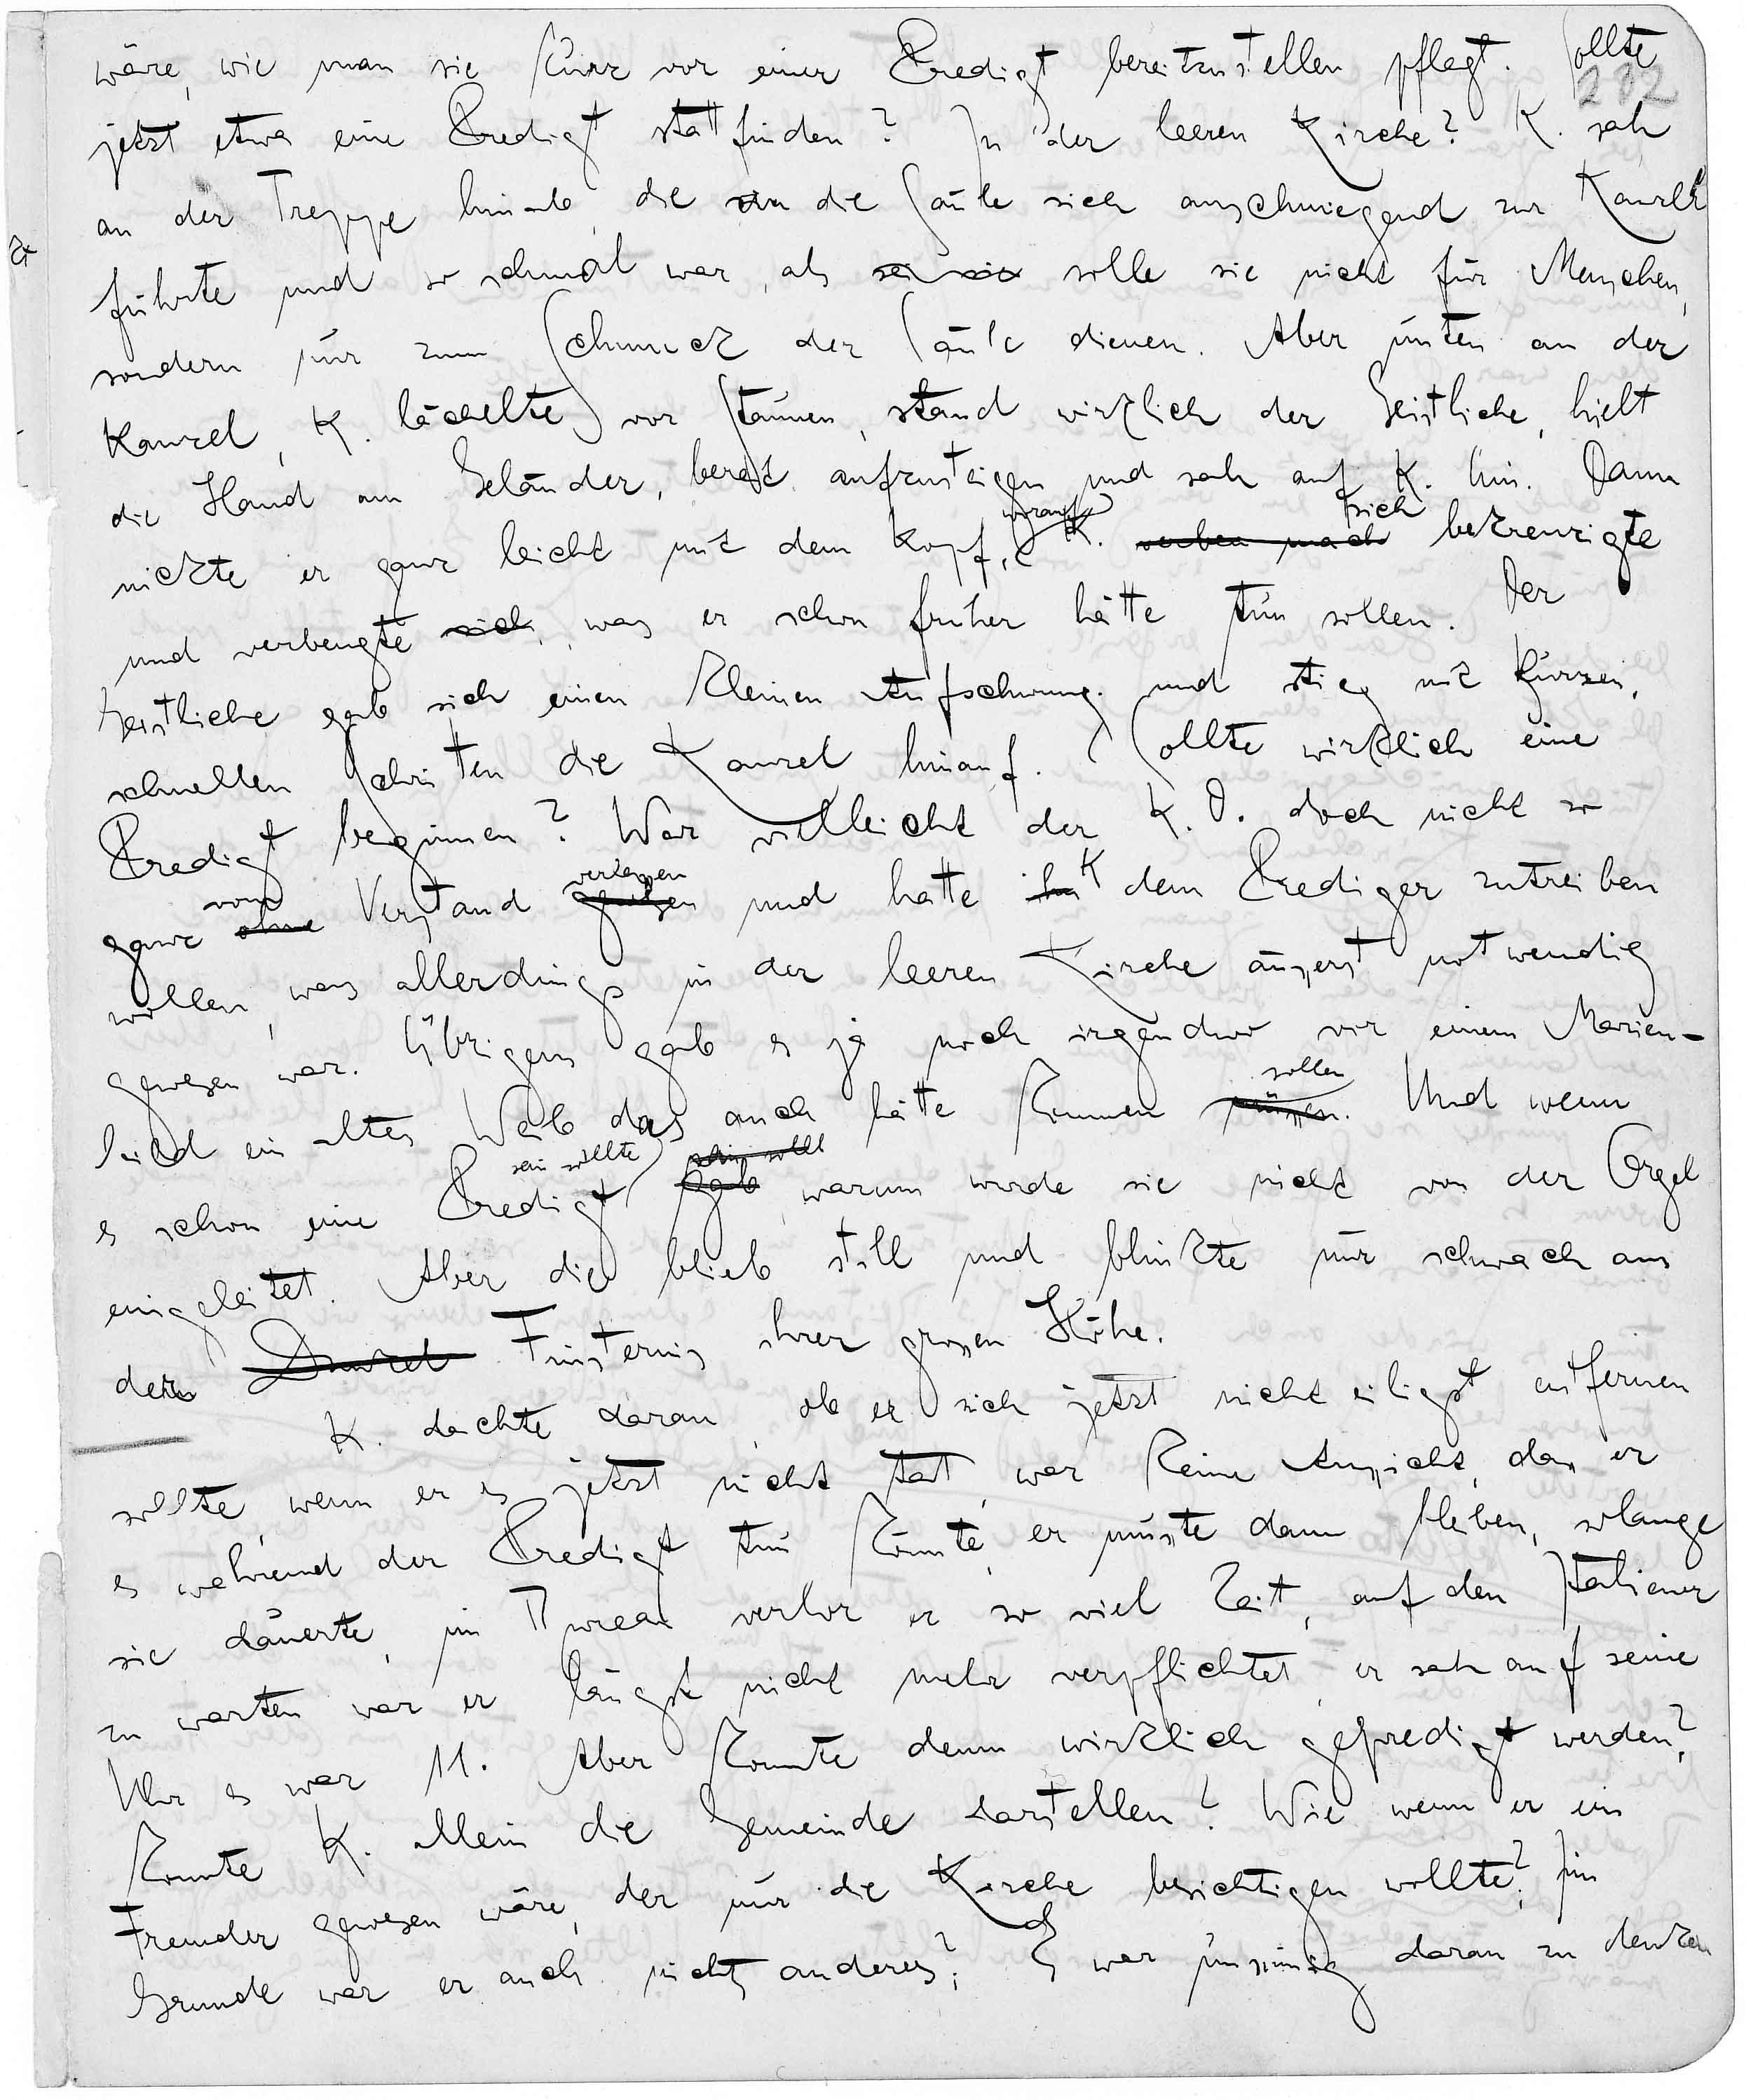 wäre, wie man sie kurz vor einer Predigt bereitzustellen pflegt. Sollte
282
jetzt etwa eine Predigt stattfinden? In der leeren Kirche? K. sah
an der Treppe hinab, die an die Säule sich anschmiegend zur Kanzel
führte und so schmal war, als sei sie solle sie nicht für Menschen,
sondern nur zum Schmuck der Säule dienen. Aber unten an der
Kanzel, K. lächelte vor Staunen, stand wirklich der Geistliche, hielt
die Hand am Geländer, bereit aufzusteigen und sah auf K. hin. Dann
nickte er ganz leicht mit dem Kopf, worauf K. sich bekreuzigte
und verbeugte sich, was er schon früher hätte tun sollen. Der
Geistliche gab sich einen kleinen Aufschwung und stieg mit kurzen,
schnellen Schritten die Kanzel hinauf. Sollte wirklich eine
Predigt beginnen? War vielleicht der K. D. doch nicht so
ganz ohne vom Verstand verlassen und hatte ihn K dem Prediger zutreiben
wollen, was allerdings in der leeren Kirche äusserst notwendig
gewesen war. Übrigens gab es ja noch irgendwo vor einem Marien-
bild ein altes Weib das auch hätte kommen müssen sollen. Und wenn
es schon eine Predigt sein sollte gab sein sollt, warum wurde sie nicht von der Orgel
eingeleitet. Aber die blieb still und blinkte nur schwach aus
der Finsternis ihrer grossen Höhe.
K. dachte daran, ob er sich jetzt nicht eiligst entfernen
sollte, wenn er es jetzt nicht tat, war keine Aussicht, dass er
es während der Predigt tun könnte, er musste dann bleiben, solange
sie dauerte, im Bureau verlor er so viel Zeit, auf den Italiener
zu warten war er längst nicht mehr verpflichtet, er sah auf seine
Uhr es war 11. Aber konnte denn wirklich gepredigt werden?
Konnte K. allein die Gemeinde darstellen? Wie wenn er ein
Fremder gewesen wäre, der nur die Kirche besichtigen wollte? Im
Grunde war er auch nichts anderes? Es war unsinnig daran zu denken